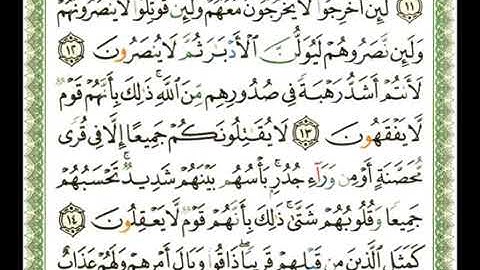 ١١ لَئِنْ أُخْرِجُوا۟ لَا يَخْرُجُونَ مَعَهُمْ وَلَئِن قُوتِلُوا۟ لَا يَنصُرُونَهُمْ
وَلَئِن نَّصَرُوهُمْ لَيُوَلُّنَّ ٱلْأَدْبَٰرَ ثُمَّ لَا يُنصَرُونَ ١٢
لَأَنتُمْ أَشَدُّ رَهْبَةً فِى صُدُورِهِم مِّنَ ٱللَّهِ ۚ ذَٰلِكَ بِأَنَّهُمْ قَوْمٌ
لَّا يَفْقَهُونَ ١٣ لَا يُقَٰتِلُونَكُمْ جَمِيعًا إِلَّا فِى قُرًى
مُّحَصَّنَةٍ أَوْ مِن وَرَآءِ جُدُرٍۭ ۚ بَأْسُهُم بَيْنَهُمْ شَدِيدٌ ۚ تَحْسَبُهُمْ
جَمِيعًا وَقُلُوبُهُمْ شَتَّىٰ ۚ ذَٰلِكَ بِأَنَّهُمْ قَوْمٌ لَّا يَعْقِلُونَ ١٤
كَمَثَلِ ٱلَّذِينَ مِن قَبْلِهِمْ قَرِيبًا ۖ ذَاقُوا۟ وَبَالَ أَمْرِهِمْ وَلَهُمْ عَذَابٌ